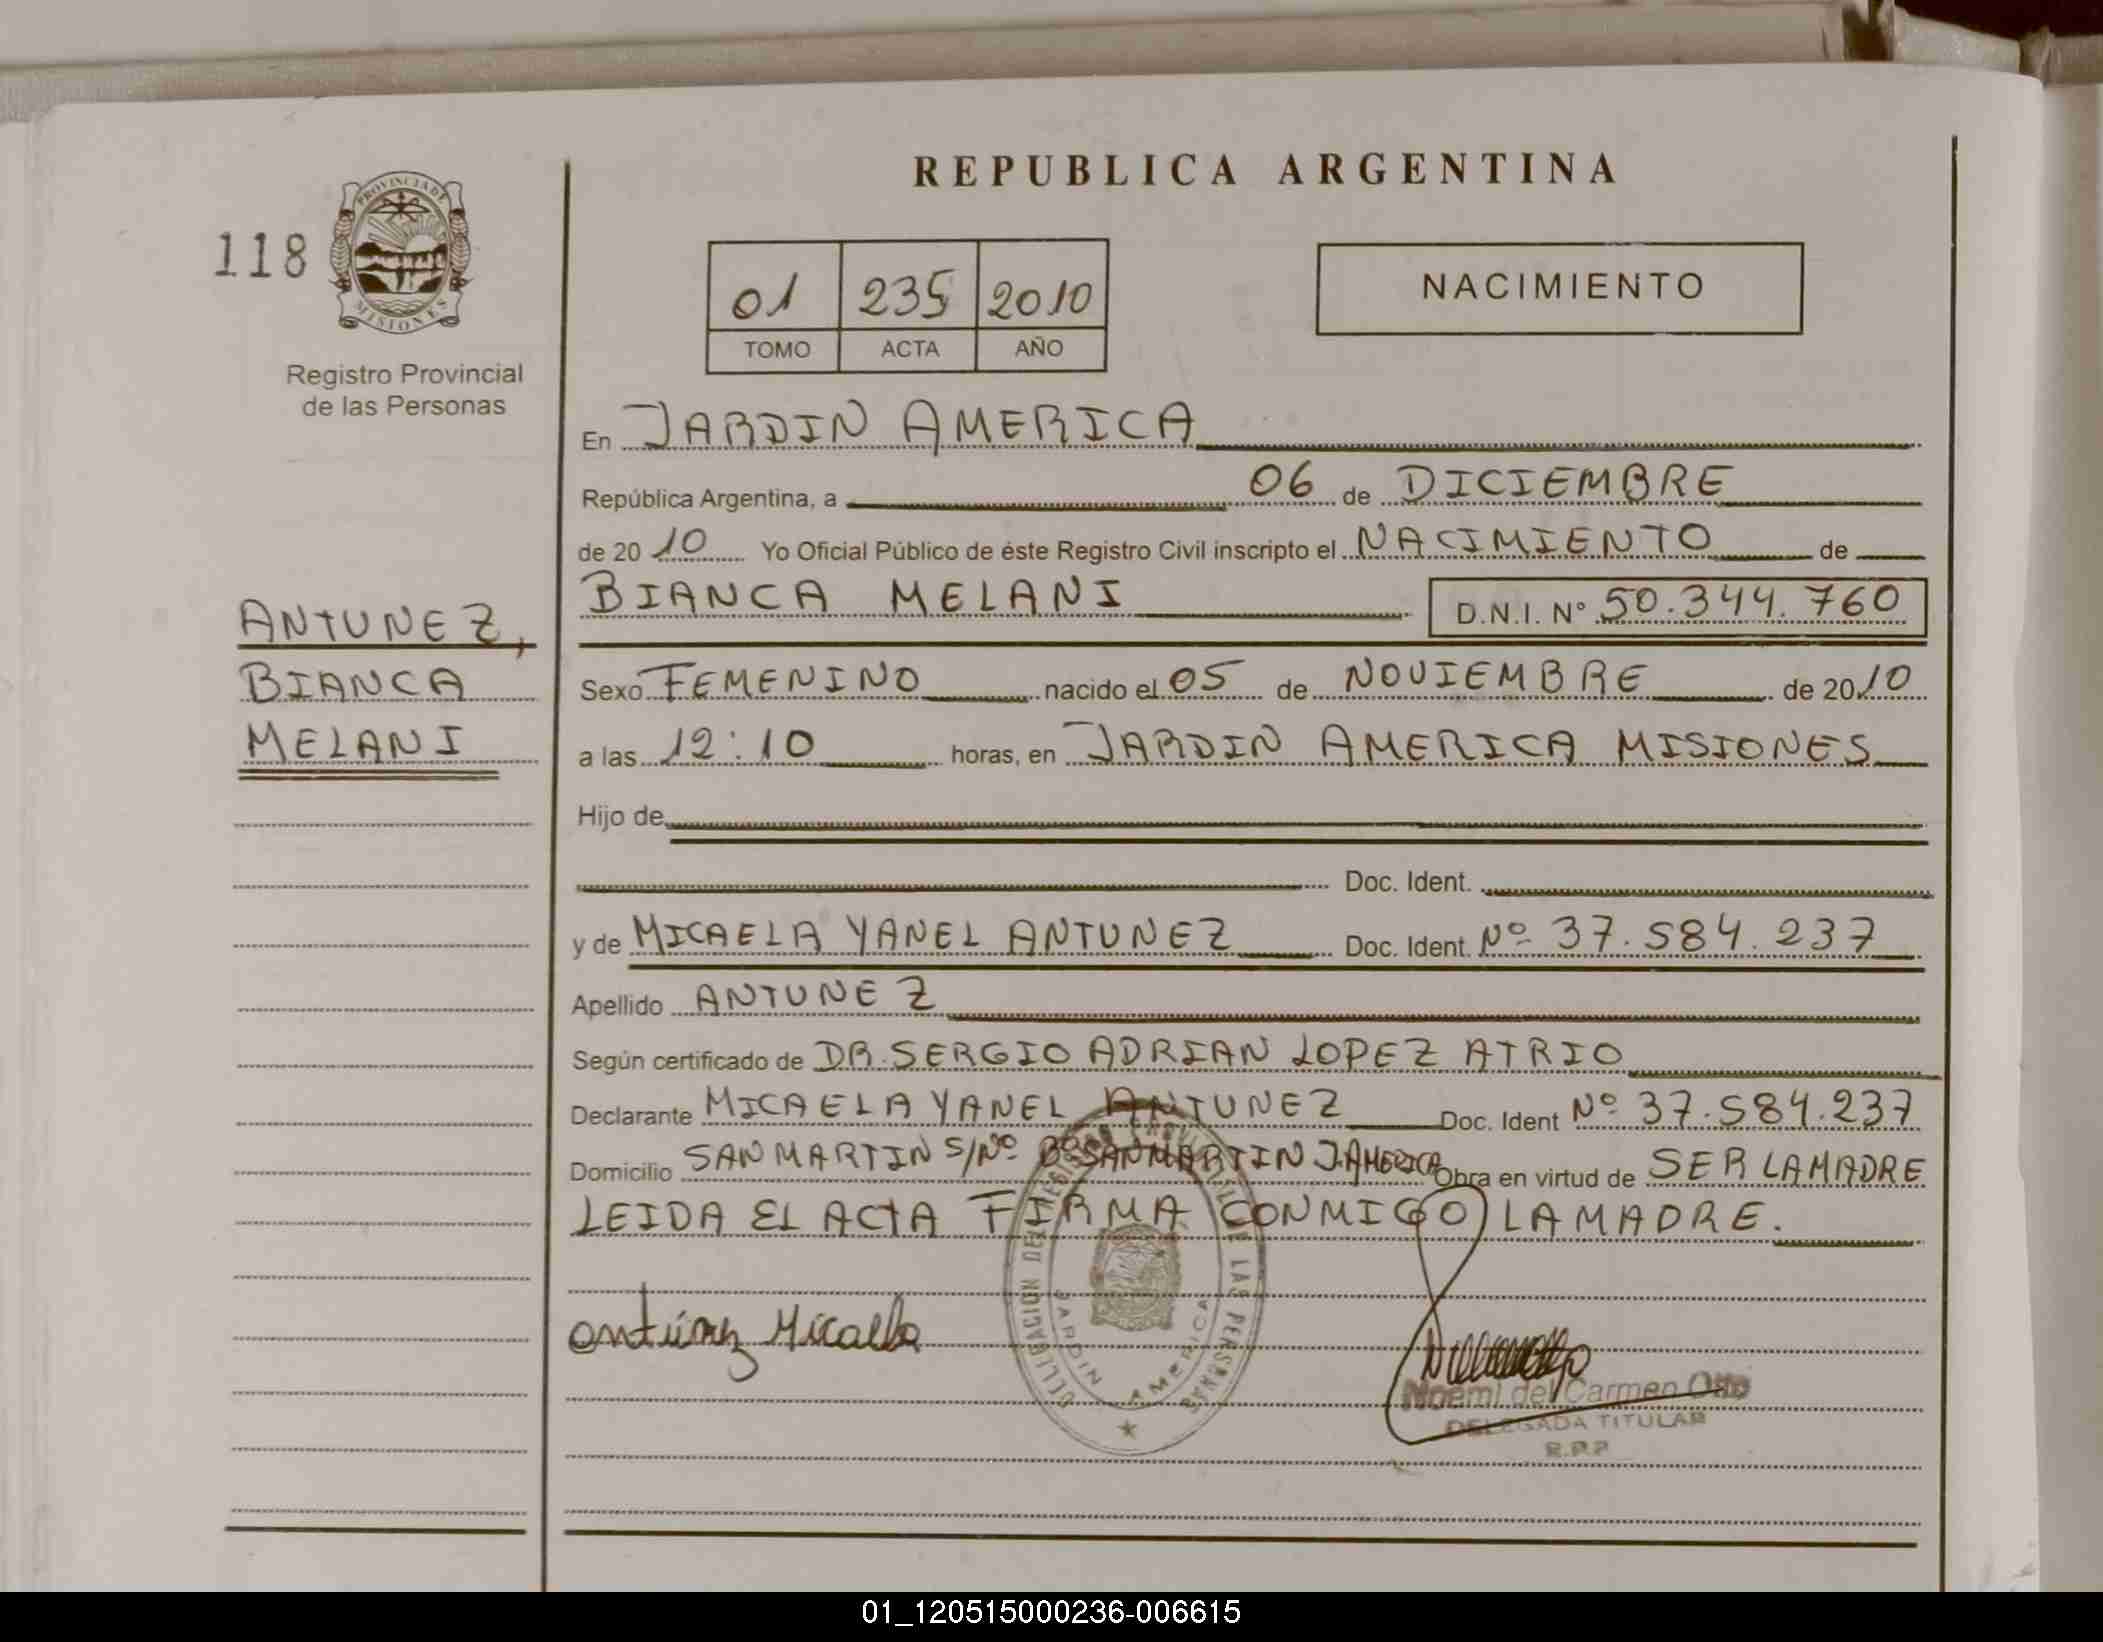 REPUBLICA ARGENTINA
118
PROVINCIA DE
MISIONES
Registro Provincial
de las Personas
01 235 2010
TOMO ACTA AÑO
NACIMIENTO
En JARDIN AMERICA
República Argentina, a 06 de DICIEMBRE
de 20 10 Yo Oficial Público de éste Registro Civil inscripto el NACIMIENTO de
BIANCA MELANI D.N.I. Nº 50.344.760
ANTUNEZ,
BIANCA
MELANI
Sexo FEMENINO nacido el 05 de NOVIEMBRE de 20 10
a las 12:10 horas, en JARDIN AMERICA MISIONES
Hijo de
Doc. Ident.
y de MICAELA YANEL ANTUNEZ Doc. Ident. Nº 37.584.237
Apellido ANTUNEZ
Según certificado de DR. SERGIO ADRIAN LOPEZ ATRIO
Declarante MICAELA YANEL ANTUNEZ Doc. Ident Nº 37.584.237
Domicilio SAN MARTIN S/Nº Bº SAN MARTIN J. AMERICA Obra en virtud de SER LA MADRE
LEIDA EL ACTA FIRMA CONMIGO LA MADRE.
Antúnez Micaela
DELEGACION DEL REGISTRO DE LAS PERSONAS
JARDIN AMERICA
Noemi del Carmen Otto
DELEGADA TITULAR
R.P.P
01_120515000236-006615